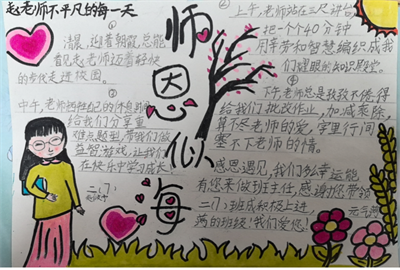 赵老师不平凡的每一天
①
清晨,迎着朝霞,总能
看见赵老师迈着轻快
的步伐走进校园。
②
上午,老师站在三尺讲台
把一个个40分钟
用辛劳和智慧编织成我
们耀眼的知识殿堂。
③
中午,老师牺牲自己的休息时间
给我们分享重
难点题型,带我们做
益智游戏,让我们
在快乐中学习成长!
④
下午,老师总是孜孜不倦得
给我们批改作业,加减乘除,
算不尽老师的爱,字里行间
塞不下老师的情。
师恩似海
感恩遇见,我们多么幸运能
有您来做班主任,感谢您带领
二(7)班成积极上进
的班级!我们爱您!
二(7)